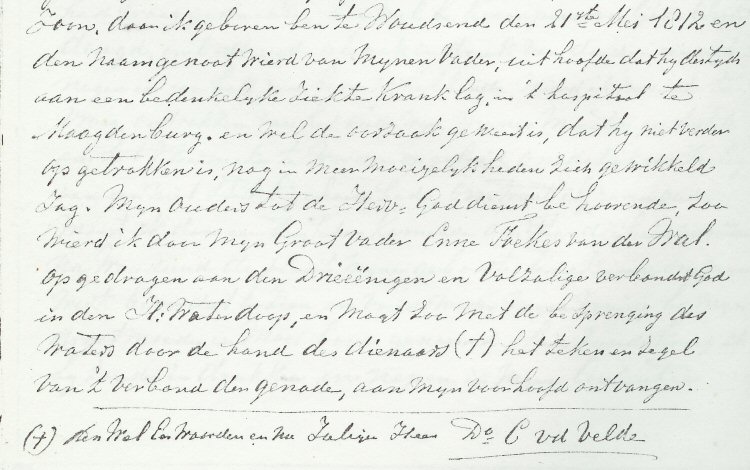 Zoon. daar ik geboren ben te Woudsend den 21ste Mei 1812 en
den Naamgenoot wierd van Mynen Vader, uit hoofde dat hy destyds
aan een bedenkelyke Ziekte Krank lag, in 't hospitaal te
Maagdenburg. en wel de oorzaak geweest is, dat hy niet verder
op getrokken is, nog in meer moeizelykheden zich gewikkeld
Zag. Myn Ouders tot de Herv: Godsdienst behoorende, Zoo
Wierd ik door Myn Groot Vader Enne Fockes van der Wal.
opgedragen aan den Drieëenigen en Volzalige verbonds God
in den H: Waterdoop, en Mogt Zoo Met de besprenging des
Waters door de hand des dienaars (+) het teken en Zegel
van 't Verbond der genade, aan Myn voorhoofd ontvangen.
(+) den Wel Eerwaarden en nu Zaligen Heer Ds C vd Velde